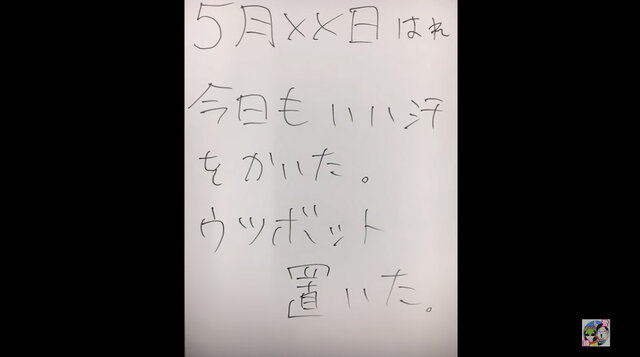 5月××日 はれ
今日もいい汗
をかいた。
ウツボット
置いた。